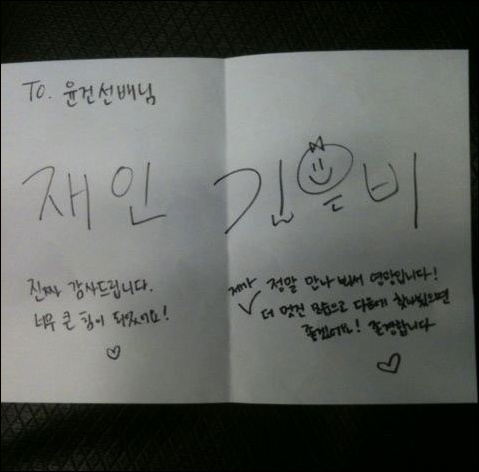 To. 윤건선배님
재인
진짜 감사드립니다.
너무 큰 힘이 되었어요!
김은비
제가 정말 만나 뵈서 영광입니다!
더 멋진 모습으로 다음에 찾아뵜으면
좋겠어요! 존경합니다